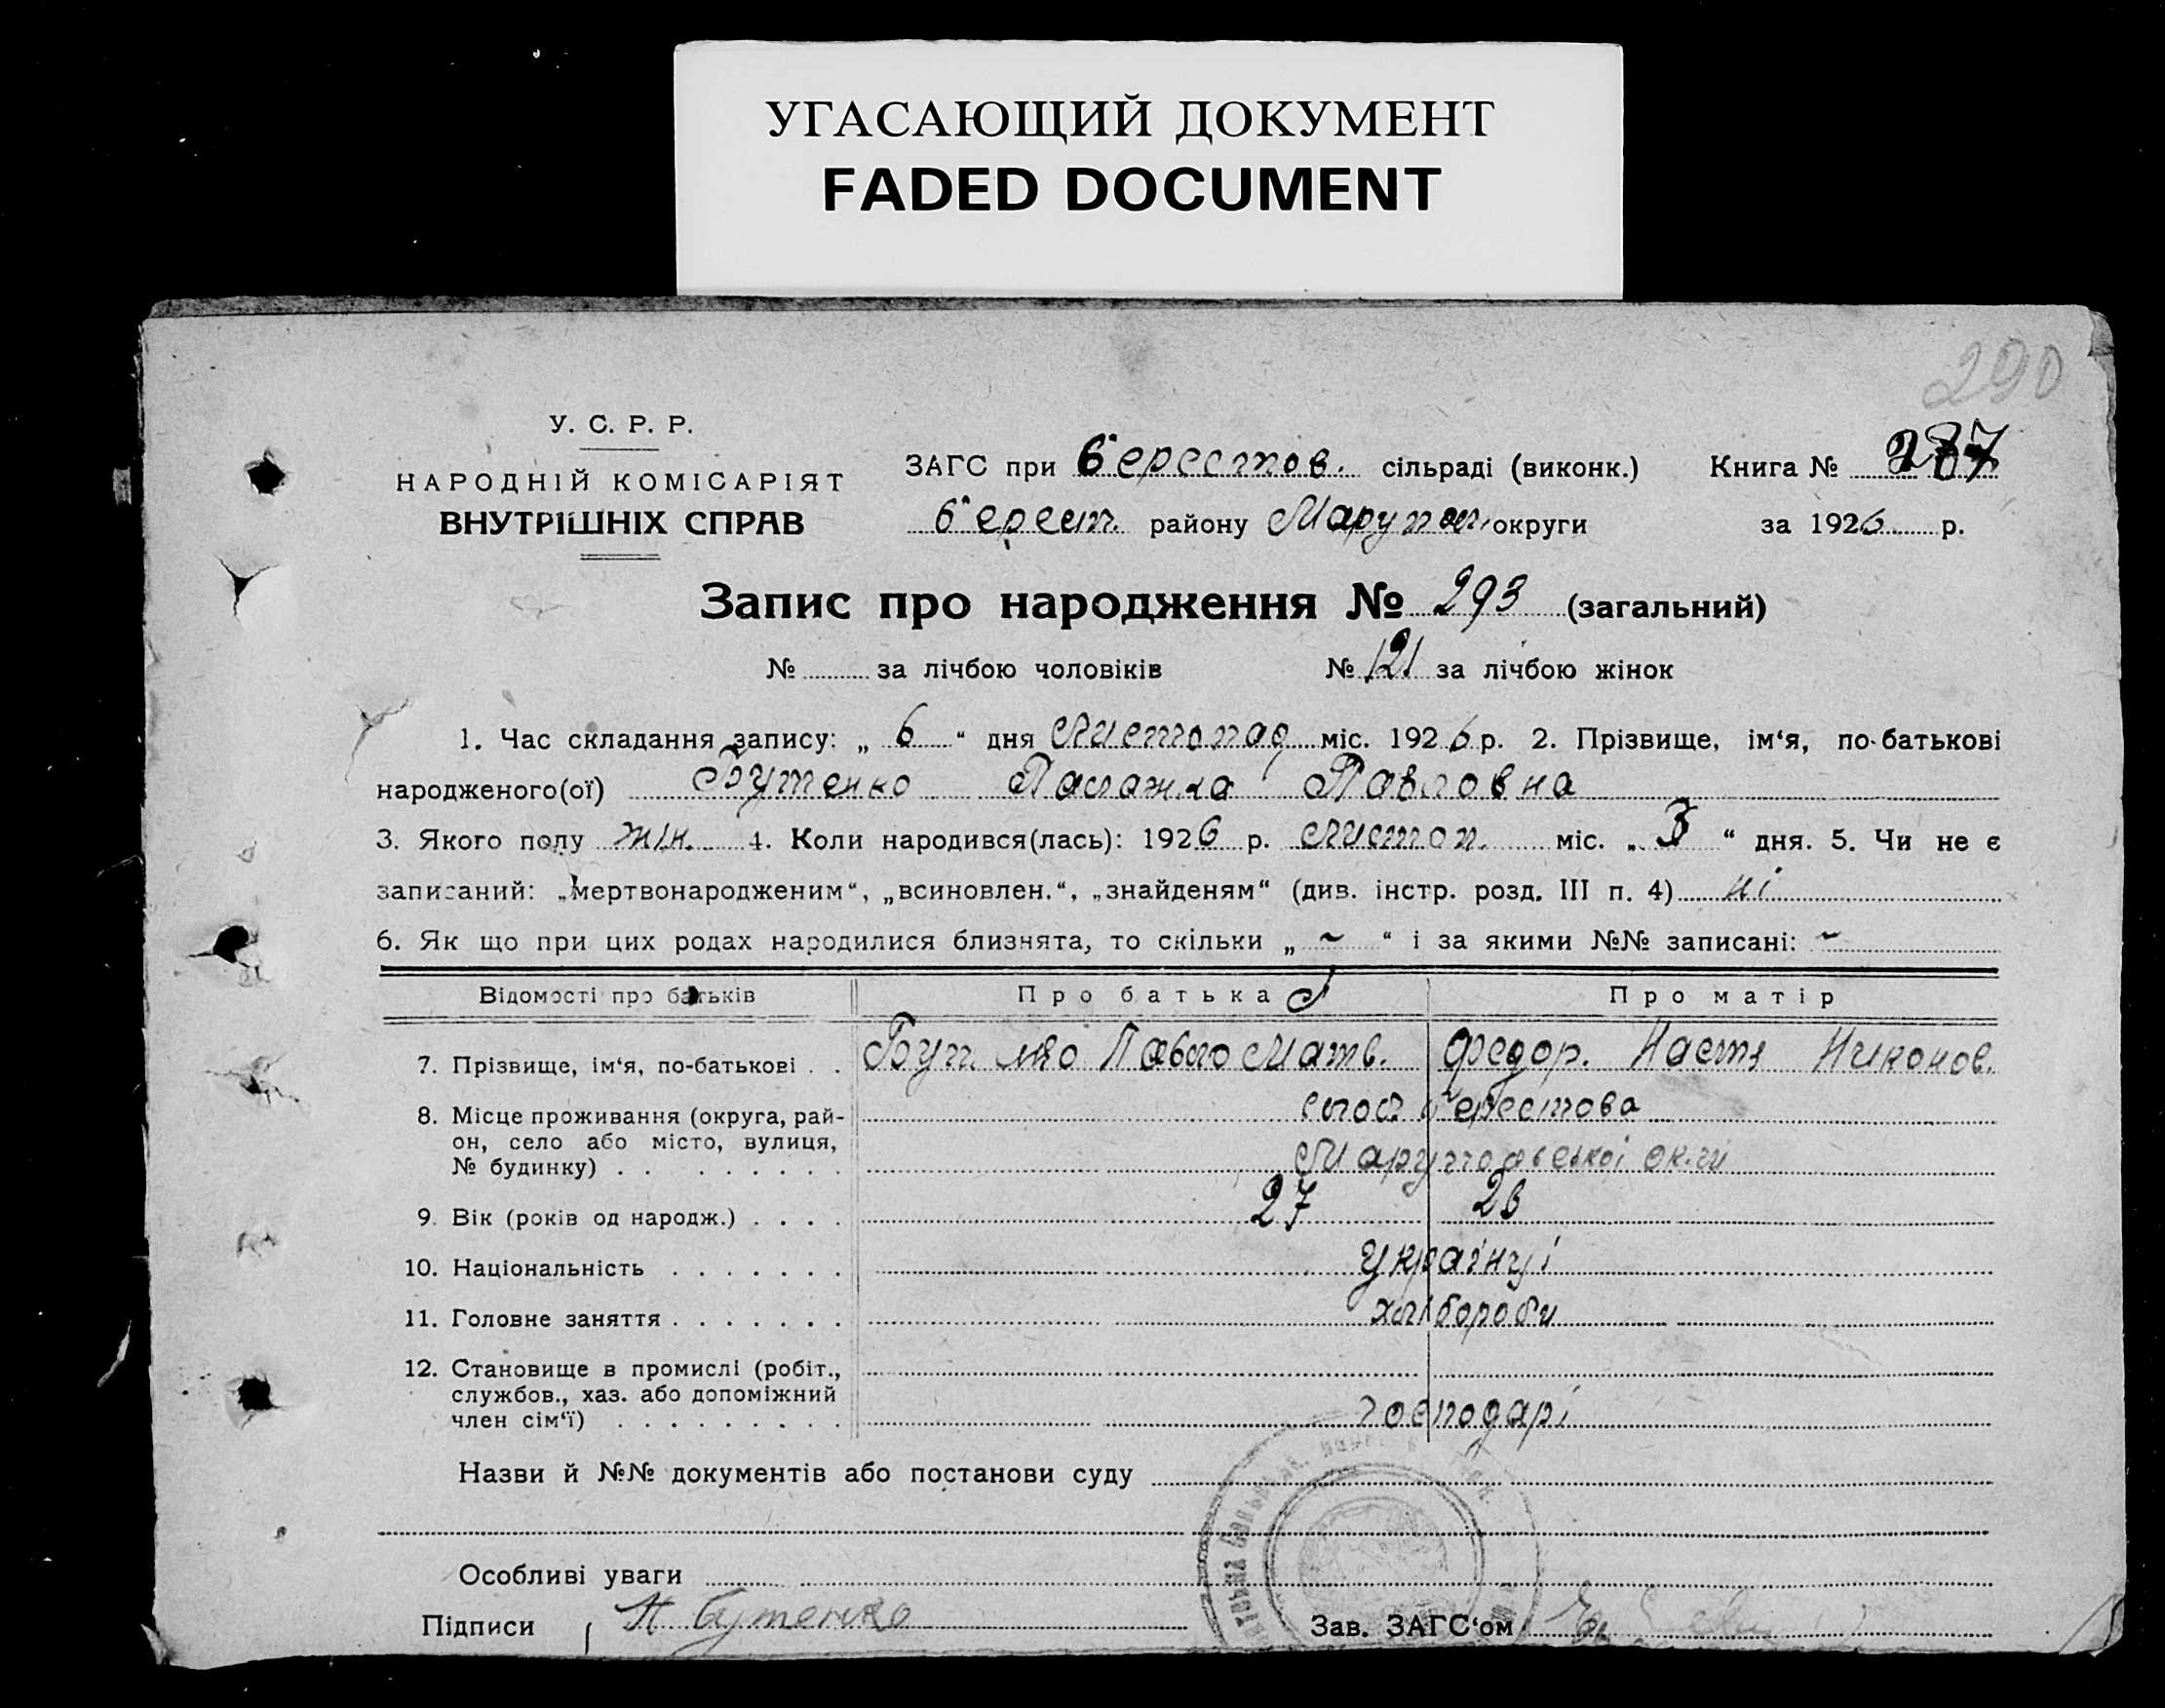 УГАСАЮЩИЙ ДОКУМЕНТ
FADED DOCUMENT
290
У. С. Р. Р.
НАРОДНІЙ КОМІСАРІЯТ
ВНУТРІШНІХ СПРАВ
ЗАГС при Берестов. сільраді (виконк.) Книга № 287
Берест. району Марупол. округи за 1926 р.
Запис про народження № 293 (загальний)
№ за лічбою чоловіків № 121 за лічбою жінок
1. Час складання запису: „ 6 “ дня листопад міс. 1926 р. 2. Прізвище, ім‘я, по-батькові
народженого(ої) Бутенко Палажка Павловна
3. Якого полу жін. 4. Коли народився(лась): 1926 р. листоп. міс. „ 3 “ дня. 5. Чи не є
записаний: „мертвонародженим“, „всиновлен.“, „знайденям“ (див. інстр. розд. III п. 4) ні
6. Як що при цих родах народилися близнята, то скільки „ ~ “ і за якими №№ записані: ~
Відомості про батьків Про батька Про матір
7. Прізвище, ім‘я, по-батькові . . Бутенко Павло Матв. Федор. Настя Никонов.
8. Місце проживання (округа, рай-
он, село або місто, вулиця,
№ будинку) . . . . . . . . .
село Берестова
Марупольської ок-ги
9. Вік (років од народж.) . . . . 27 26
10. Національність . . . . . . . українці
11. Головне заняття . . . . . . . хлібороби
12. Становище в промислі (робіт.,
службов., хаз. або допоміжний
член сім‘ї) . . . . . . . . . господарі
Назви й №№ документів або постанови суду
Особливі уваги
Підписи П Бутенко Зав. ЗАГС‘ом